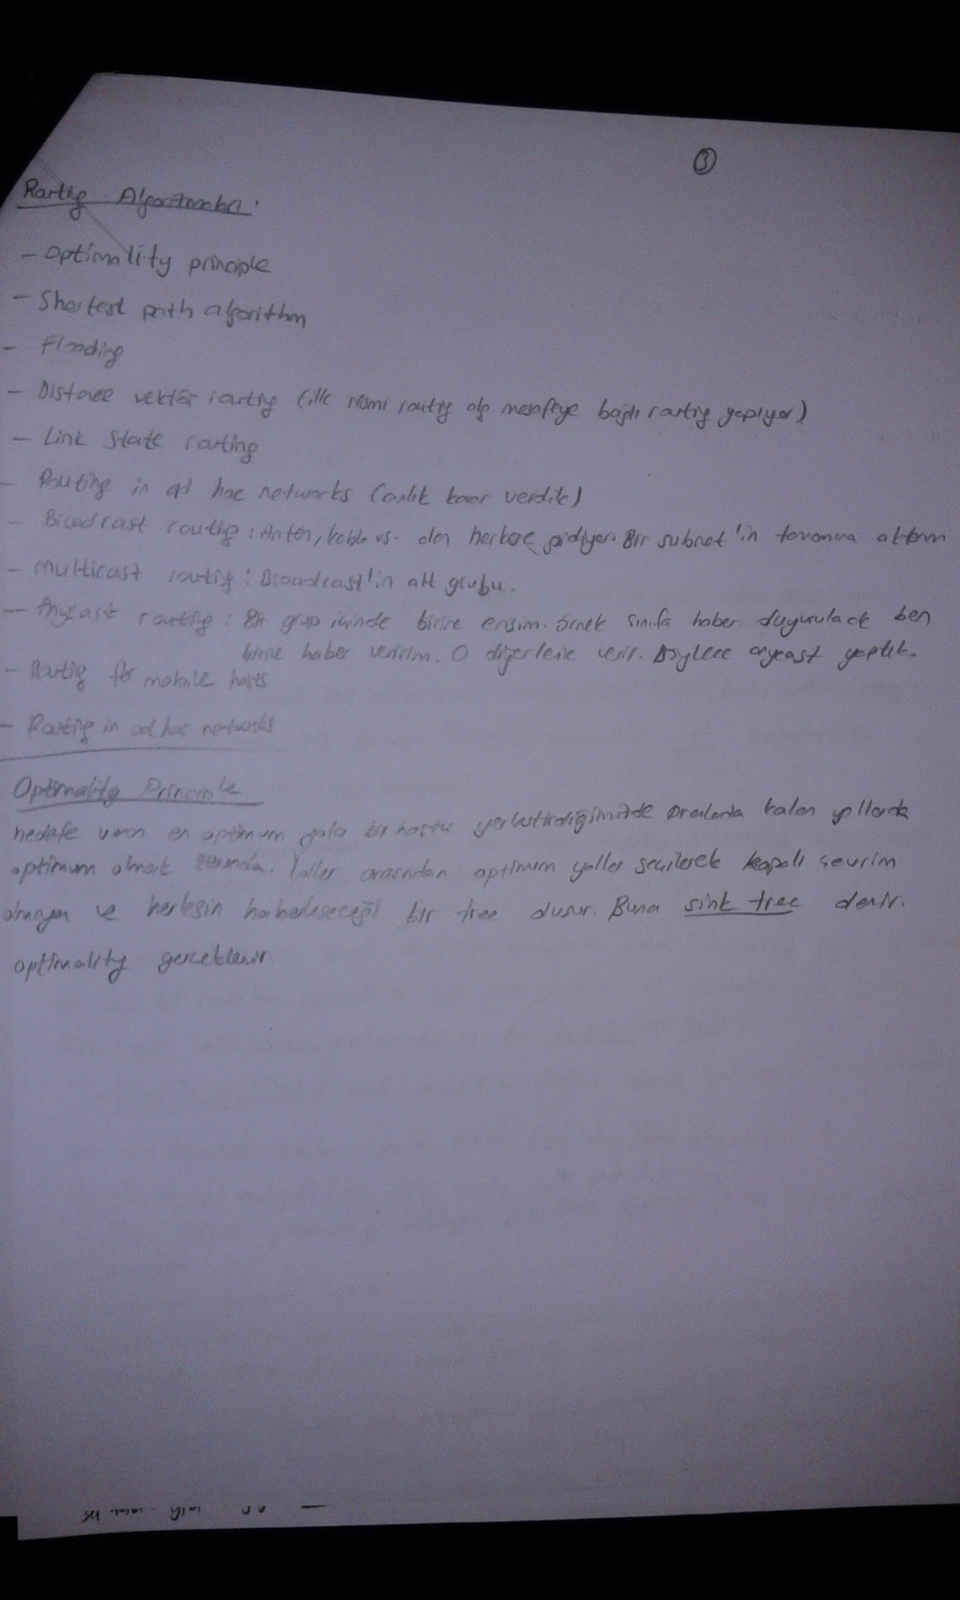 3
Routing Algoritmaları
- Optimality principle
- Shortest path algorithm
- Flooding
- Distance vektör routing (ilk resmi routing alg. mesafeye bağlı routing yapıyor)
- Link state routing
- Routing in ad hoc networks (anlık karar verdik)
- Broadcast routing : Anten, kablo vs. den herkese gidiyor. Bir subnet'in tamamına aktarım
- Multicast routing : Broadcast'in alt grubu.
- Anycast routing : Bir grup içinde birine erişim. Örnek sınıfa haber duyurulacak ben
birine haber veririm. O diğerlerine verir. Böylece anycast yaptık.
- Routing for mobile hosts
- Routing in ad hoc networks
Optimality Principle
hedefe varan en optimum yola bir hostu yerleştirdiğimizde aralarda kalan yollarda
optimum olmak zorunda. Yollar arasından optimum yollar seçilerek kapalı çevrim
olmayan ve herkesin haberleşeceği bir tree Buna sink tree denir.
optimality